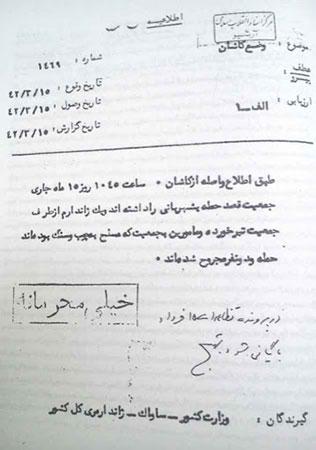 اطلاعیه
مرکز اسناد انقلاب اسلامی
آرشیو
موضوع : وضع کاشان
شماره : ۱۴۶۹
عطف :
پیرو
تاریخ وقوع : ۴۲/۳/۱۵
ارزیابی : الف ــ ۱
تاریخ وصول : ۴۲/۳/۱۵
تاریخ گزارش : ۴۲/۳/۱۵
طبق اطلاع واصله از کاشان ۰ ساعت ۱۰۴۵ روز ۱۵ ماه جاری
جمعیت قصد حمله بشهربانی را داشته اند و یک ژاندارم از طرف
جمعیت تیر خورده و مامورین بجمعیت که مسلح بچوب و سنگ بوده اند
حمله و دو نفر مجروح شده اند ۰
خیلی محرمانه
در پرونده تظاهرات
بایگانی شود
گیرندگان : وزارت کشور ــ ساواک ــ ژاندارمری کل کشور